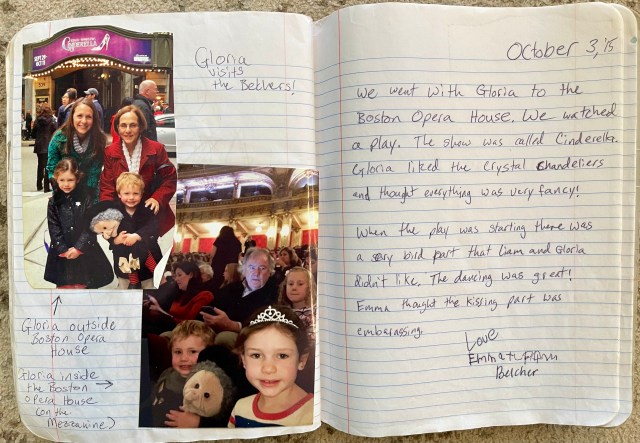 CINDERELLA
Gloria
visits
the Belchers!
Gloria outside
Boston Opera
House
Gloria inside
the Boston
Opera House
(on the
Mezzanine)
October 3, '15
We went with Gloria to the
Boston Opera House. We watched
a play. The show was called Cinderella.
Gloria liked the crystal chanderiers
and thought everything was very fancy!
When the play was starting there was
a bird part that Liam and Gloria
didn't like. The dancing was great!
Emma thought the kissing part was
embarassing.
Love
Emma +
Belcher